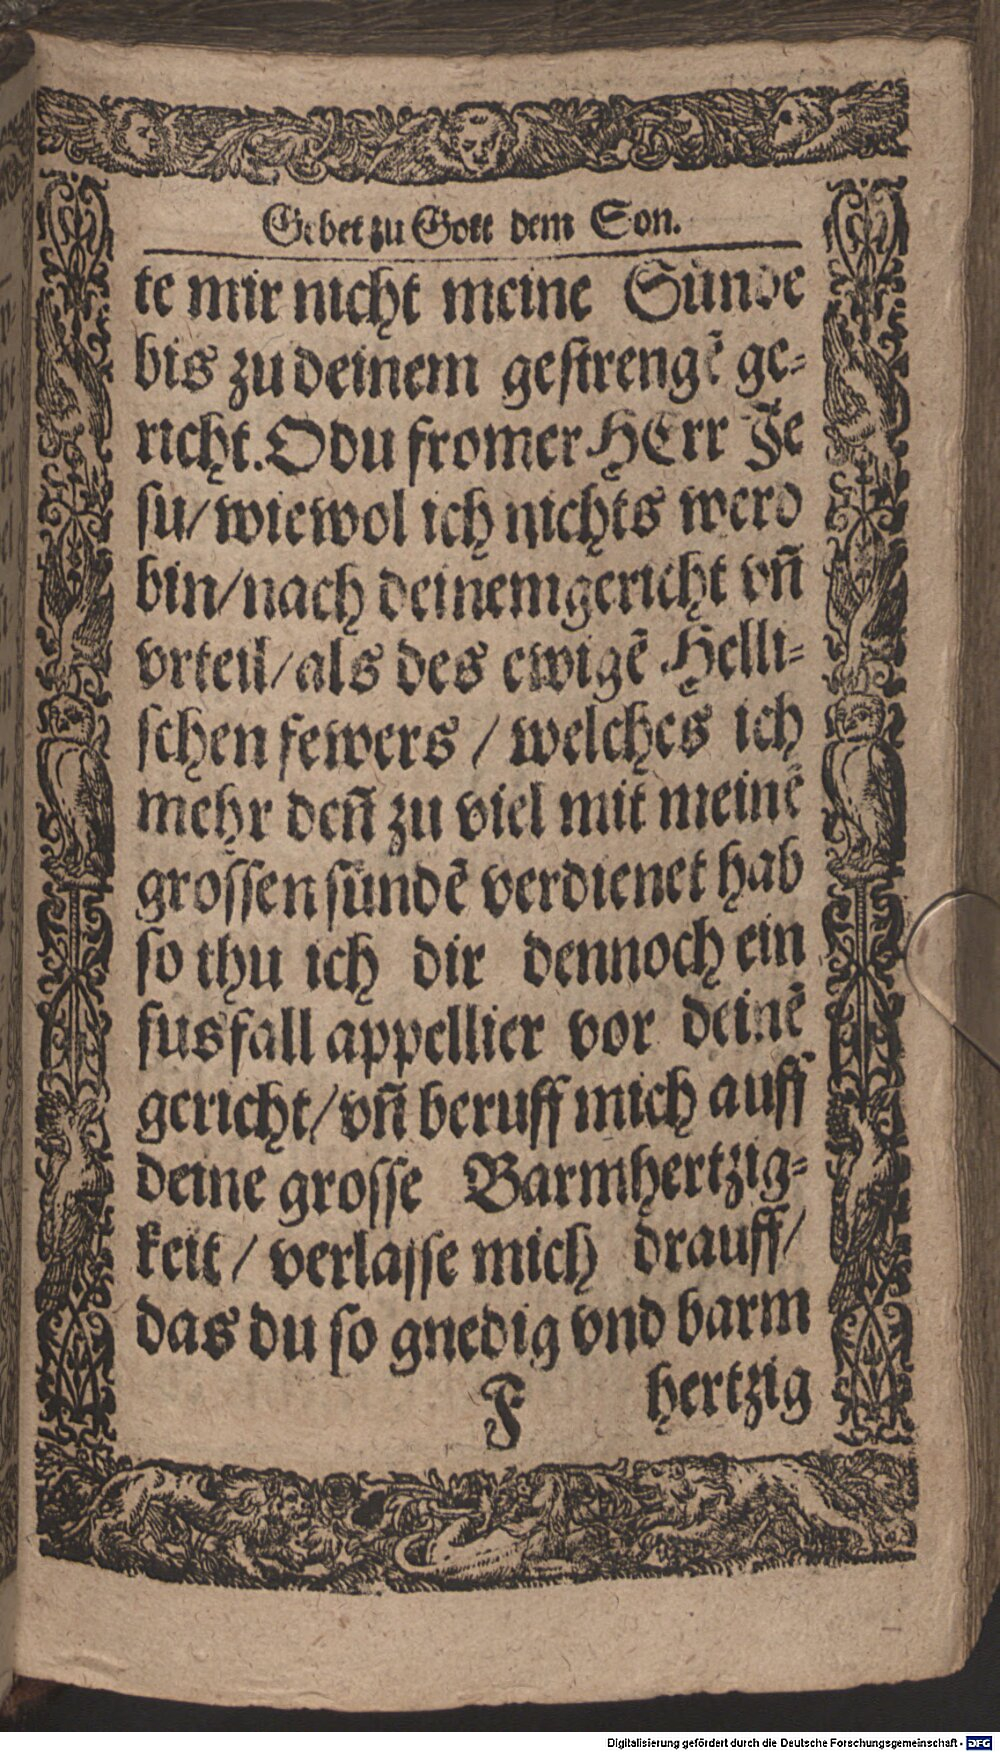 Gebet zu Gott dem Son.
te mir nicht meine Sünde
bis zu deinem gestrengẽ ge⸗
richt. O du fromer HErr Je
su/ wiewol ich nichts werd
bin/ nach deinem gericht vñ
vrteil/ als des ewigẽ Helli⸗
schen fewers / welches ich
mehr deñ zu viel mit meinẽ
grossen sündẽ verdienet hab
so thu ich dir dennoch ein
fusfall appellier vor deinẽ
gericht/ vñ beruff mich auff
deine grosse Barmhertzig⸗
keit / verlasse mich drauff/
das du so gnedig vnd barm
F hertzig
Digitalisierung gefördert durch die Deutsche Forschungsgemeinschaft - DFG